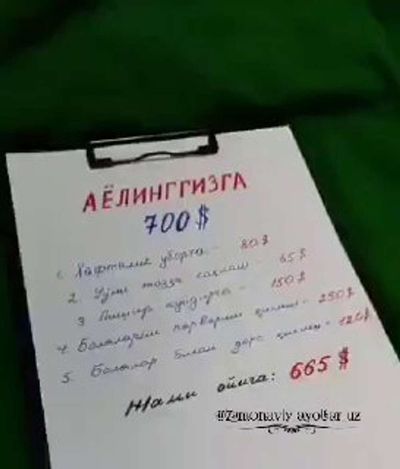 АЁЛИНГГИЗГА
700$
1. Хафталик уборка - 80$
2. Уйни тозза сақлаш - 65$
3. - 150$
4. Болаларни парвариш қилиш - 250$
5. Болалар билан дарс қилиш - 120$
Жами ойига: 665$
@Zamonaviy_ayollar_uz